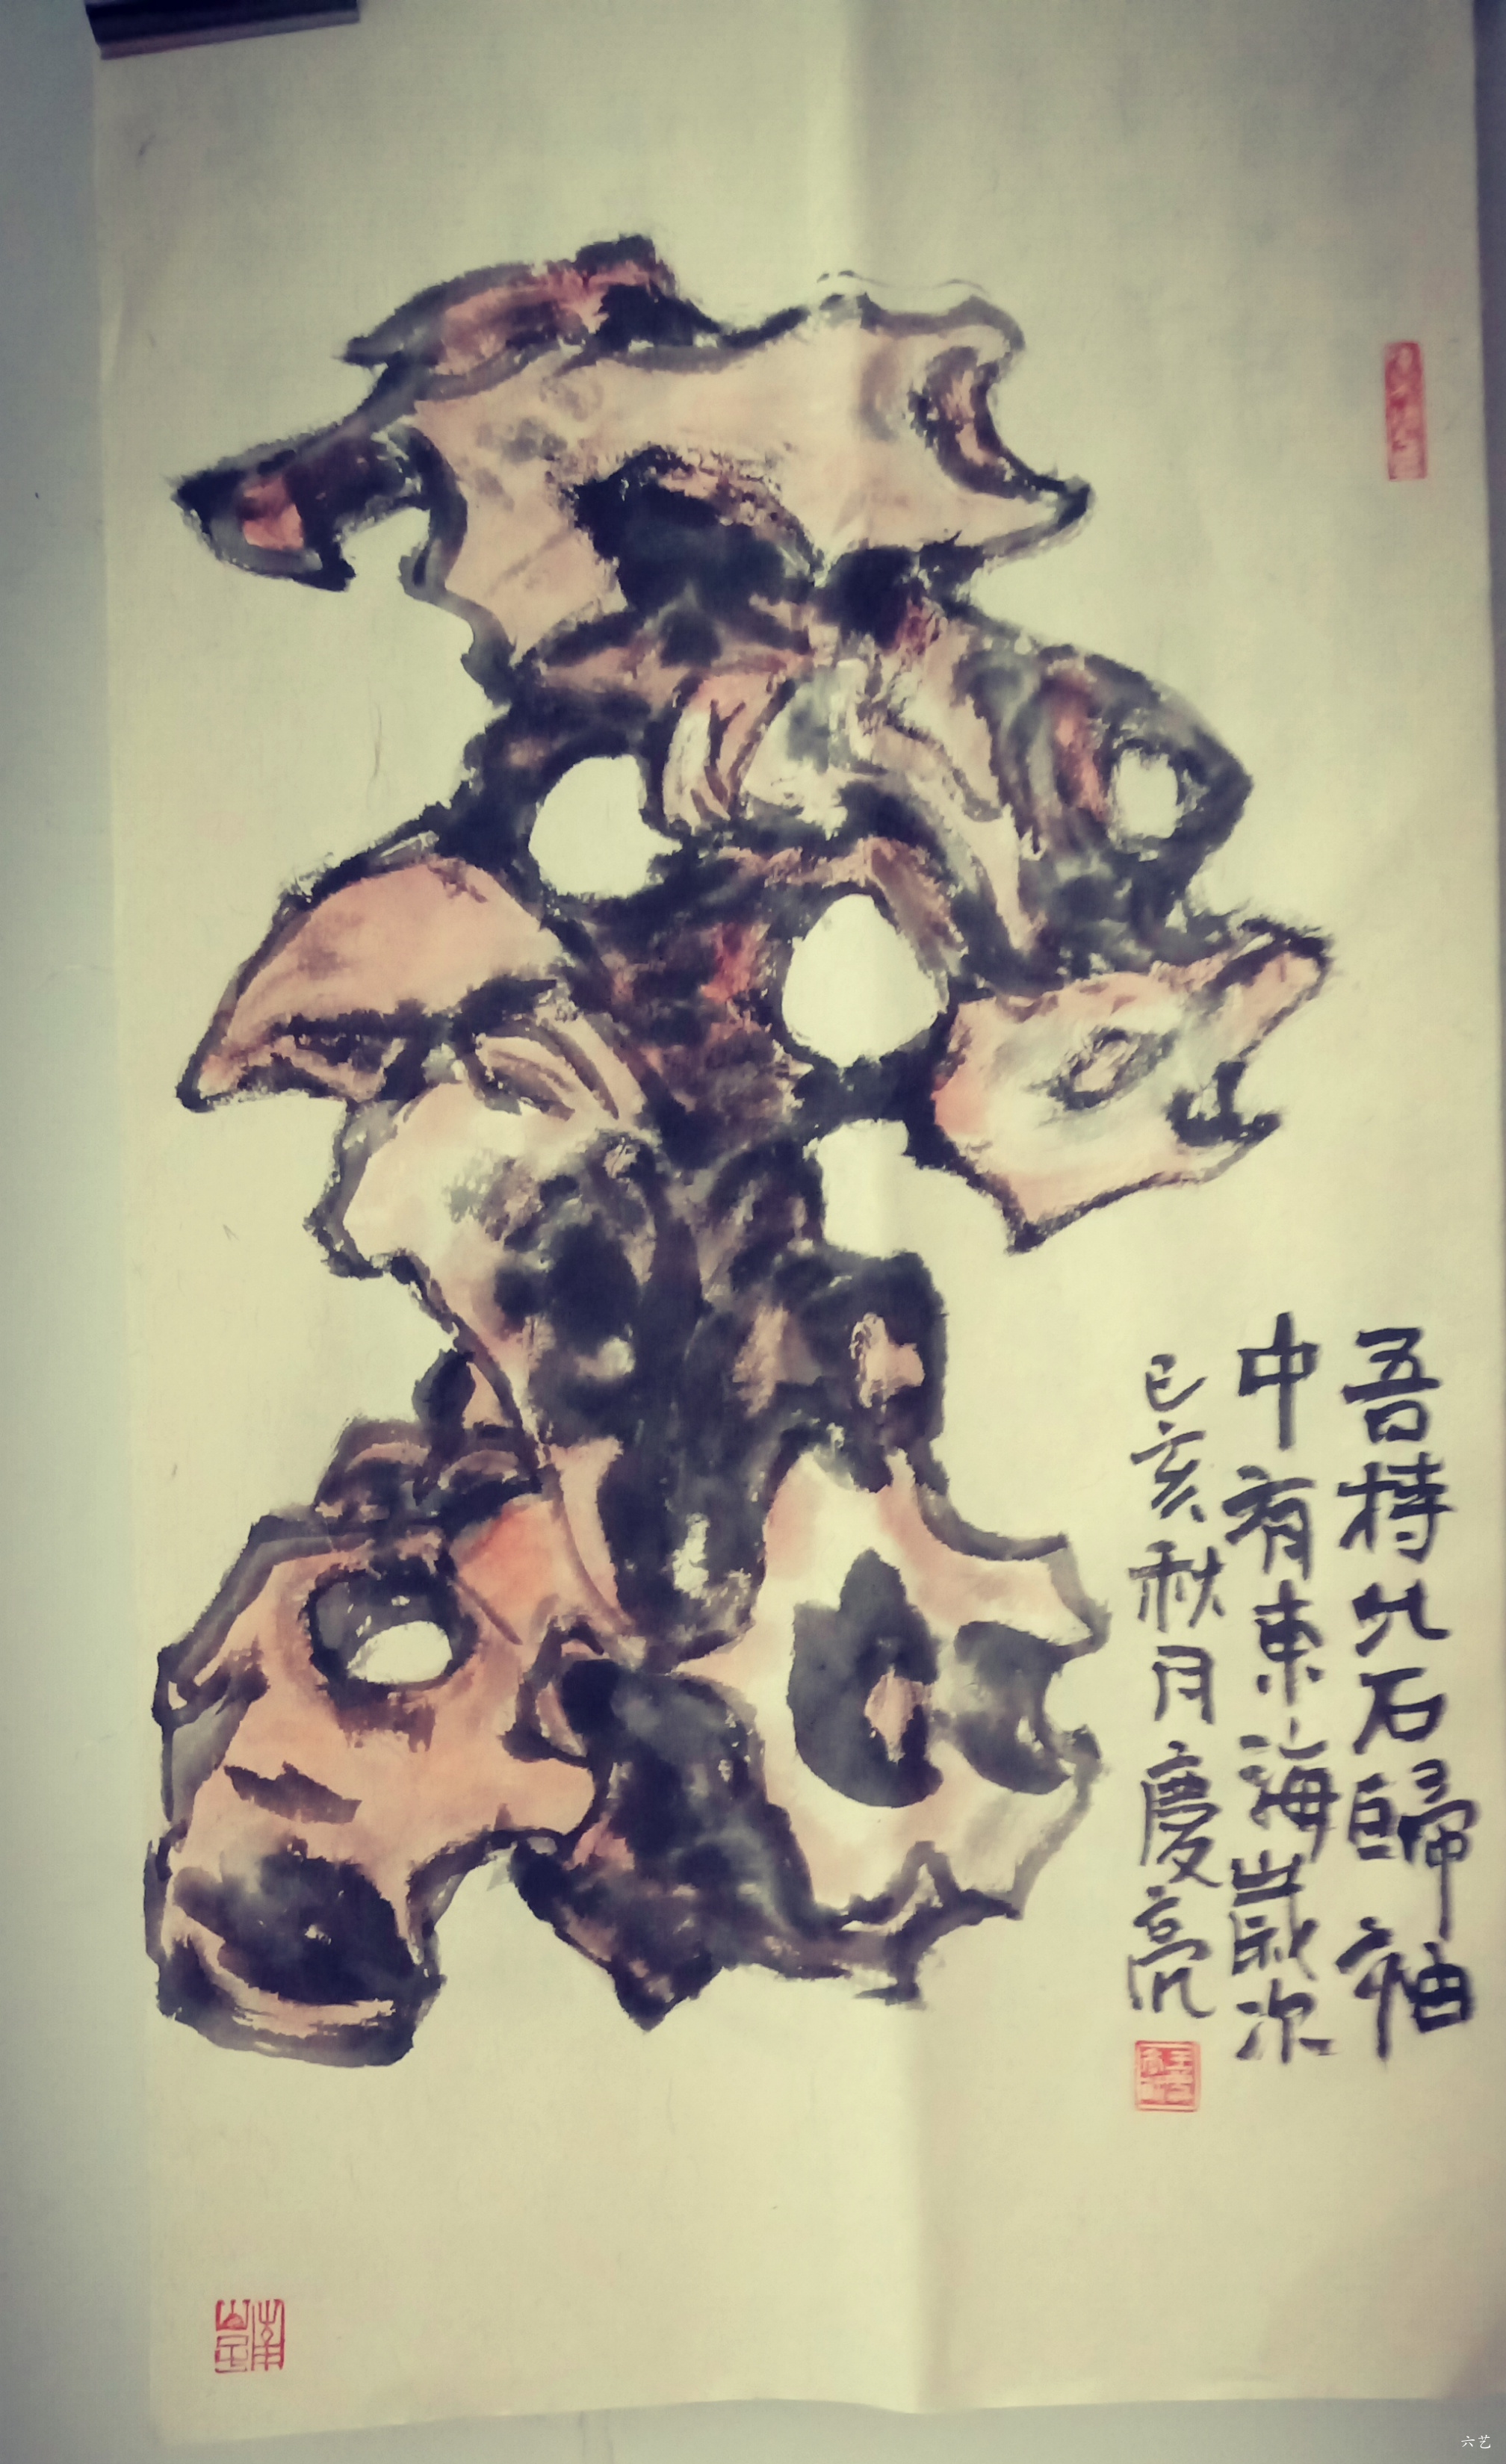 吾持此石歸袖
中有東海歲次
己亥秋月慶亮
六艺